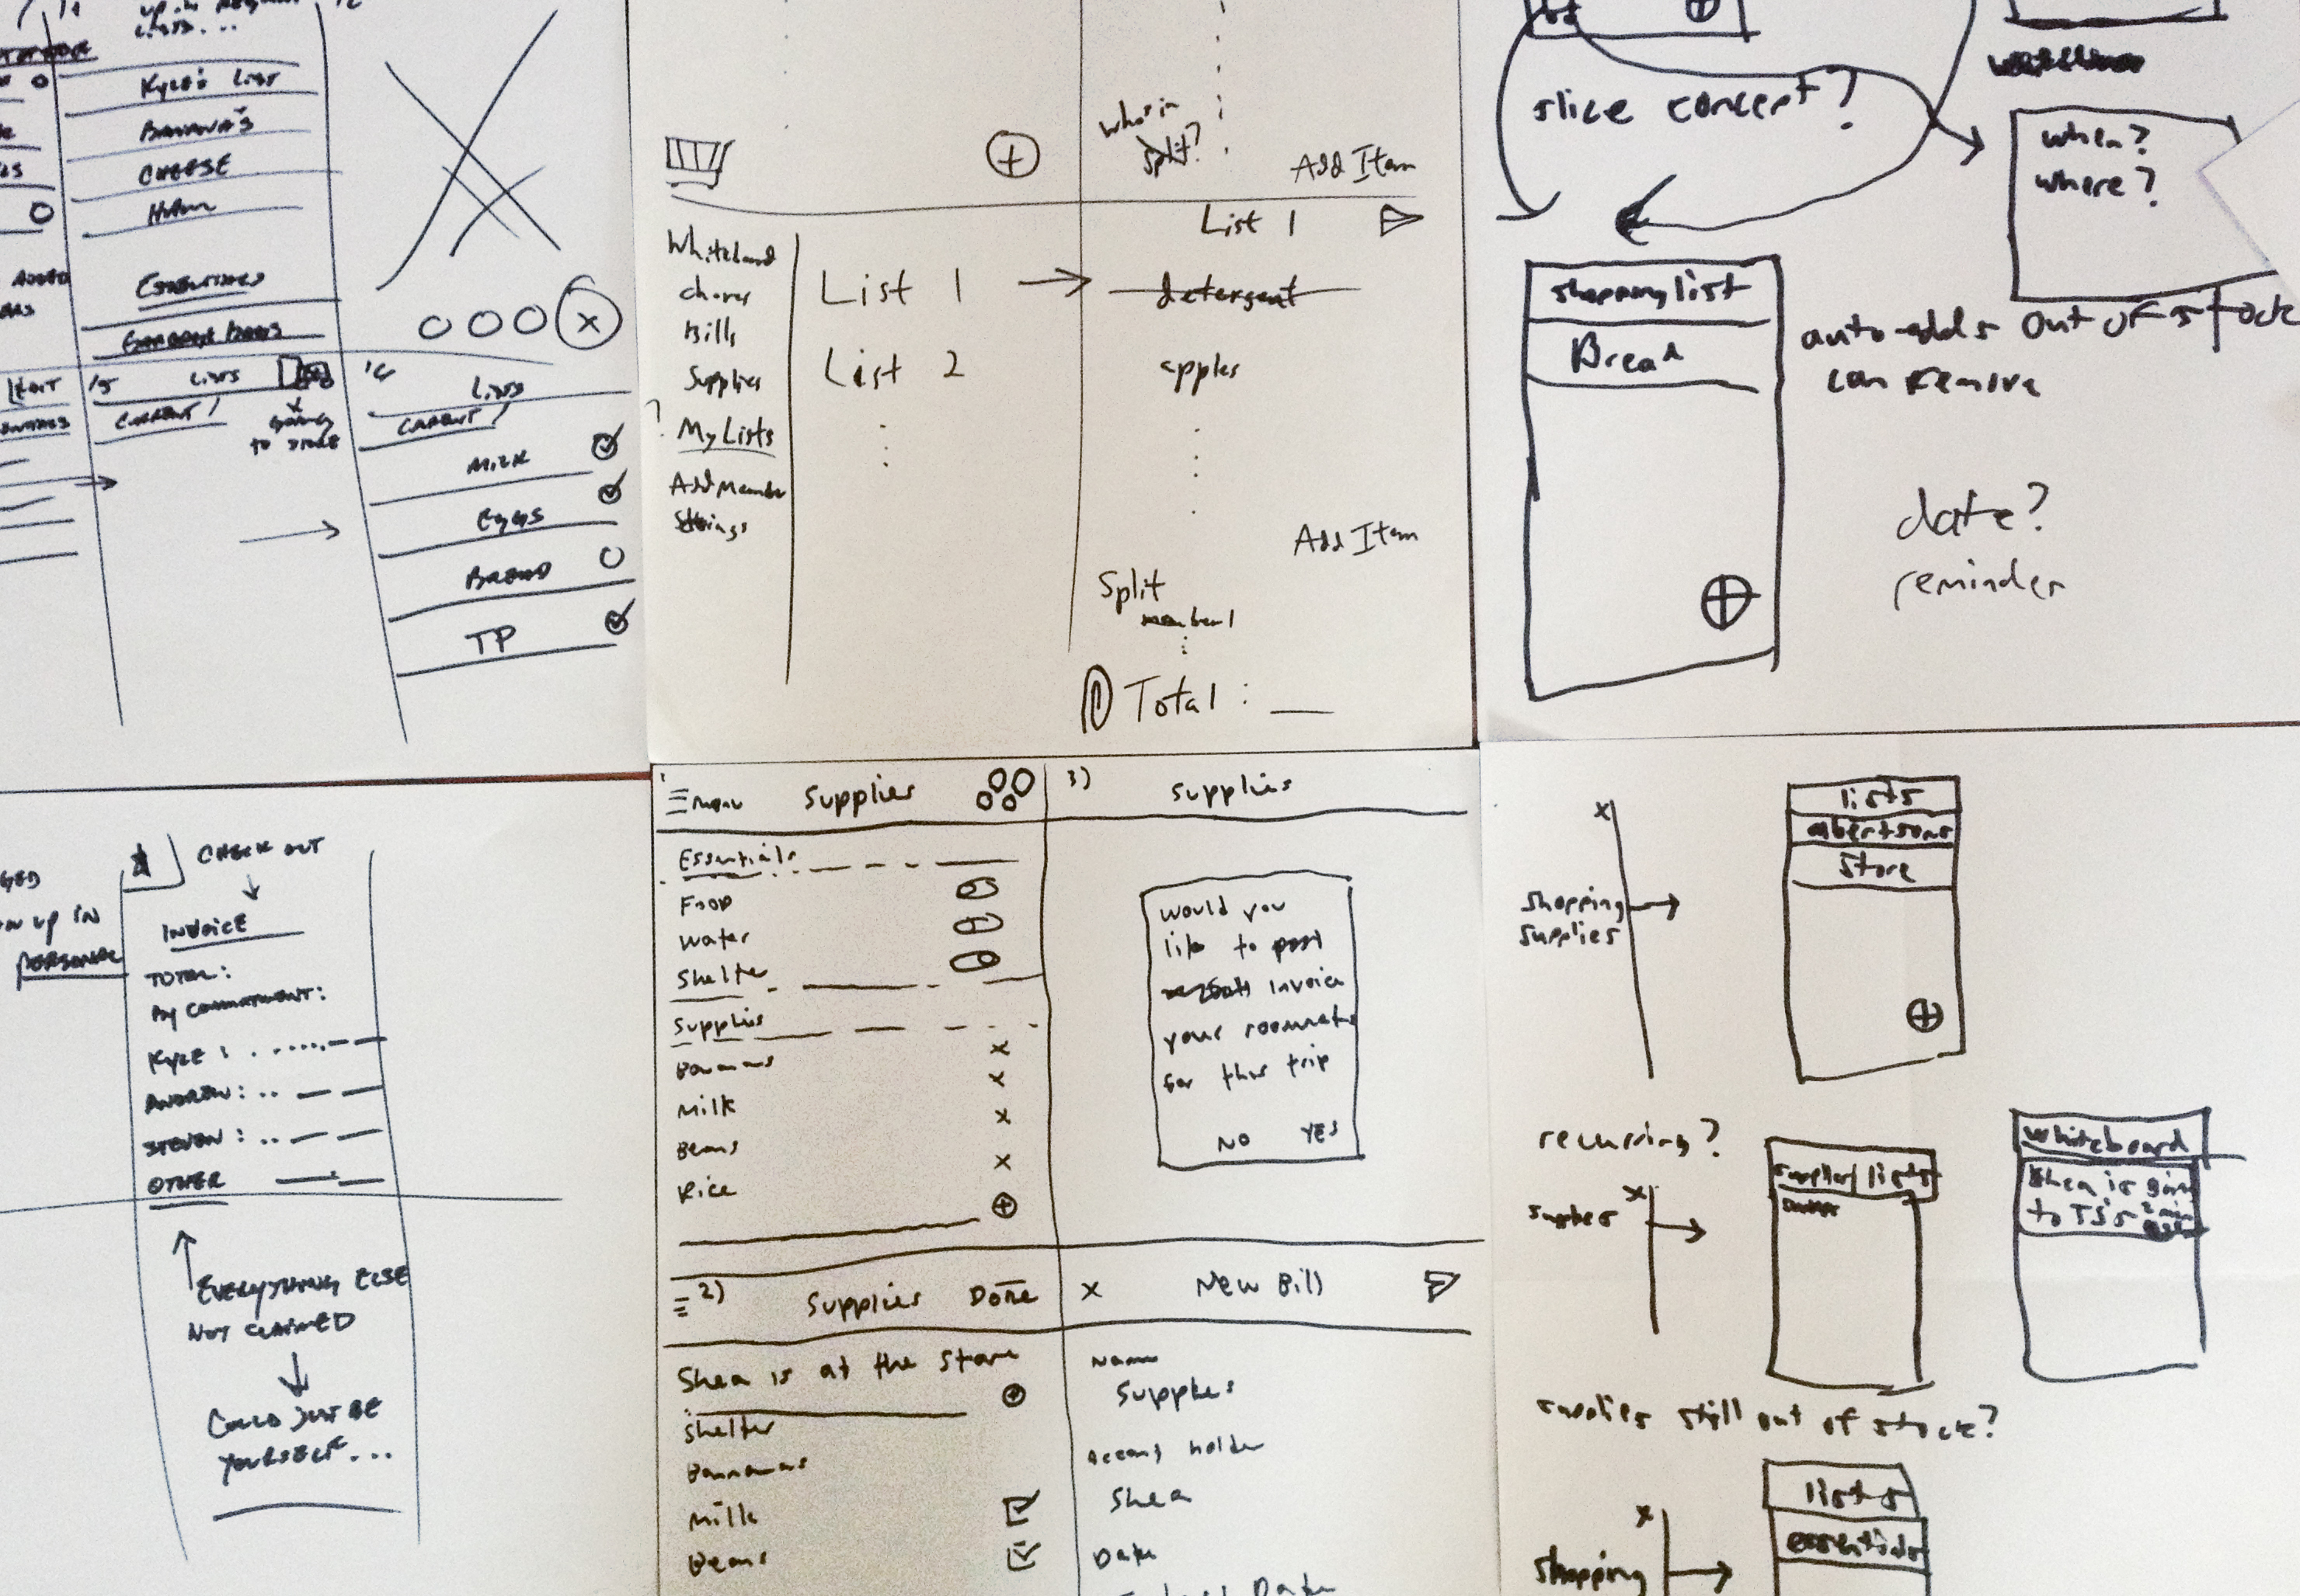 Kyle's List
BANANA'S
CHEESE
HUMM
ESSENTIALS
X
LISTS
CURRENT /
GOING
TO STORE
LISTS
CURRENT /
MILK
EGGS
BREAD
TP
who's in
split?
Add Item
List 1
Whiteboard
chores
Bills
Supplies
? My Lists
Add Member
Settings
List 1
List 2
detergent
apples
Add Item
Split
member 1
Total : __
slice concept?
when?
where?
shopping list
Bread
auto-adds out of stock
can remove
date?
reminder
CHECK OUT
INVOICE
TOTAL:
BY COMMITMENT:
KYLE :
ANDREW:
STEVEN :
OTHER
UP IN
PERSONAL
EVERYTHING ELSE
NOT CLAIMED
COULD JUST BE
YOURSELF...
menu Supplies
Essentials
Food
water
Shelter
Supplies
Bananas x
Milk x
Beans x
Rice x
3) Supplies
would you
like to post
invoice
your roommates
for this trip
NO YES
2) Supplies Done
Shea is at the store
Shelter
Bannanas
Milk
Beans
x New Bill
Name
Supplies
Account holder
Shea
Date
x
shopping
supplies
lists
albertsons
Store
recurring?
x
supplies
supplies/lists
whiteboard
Shea is going
to TJ's
supplies still out of stock?
x
shopping
lists
essentials